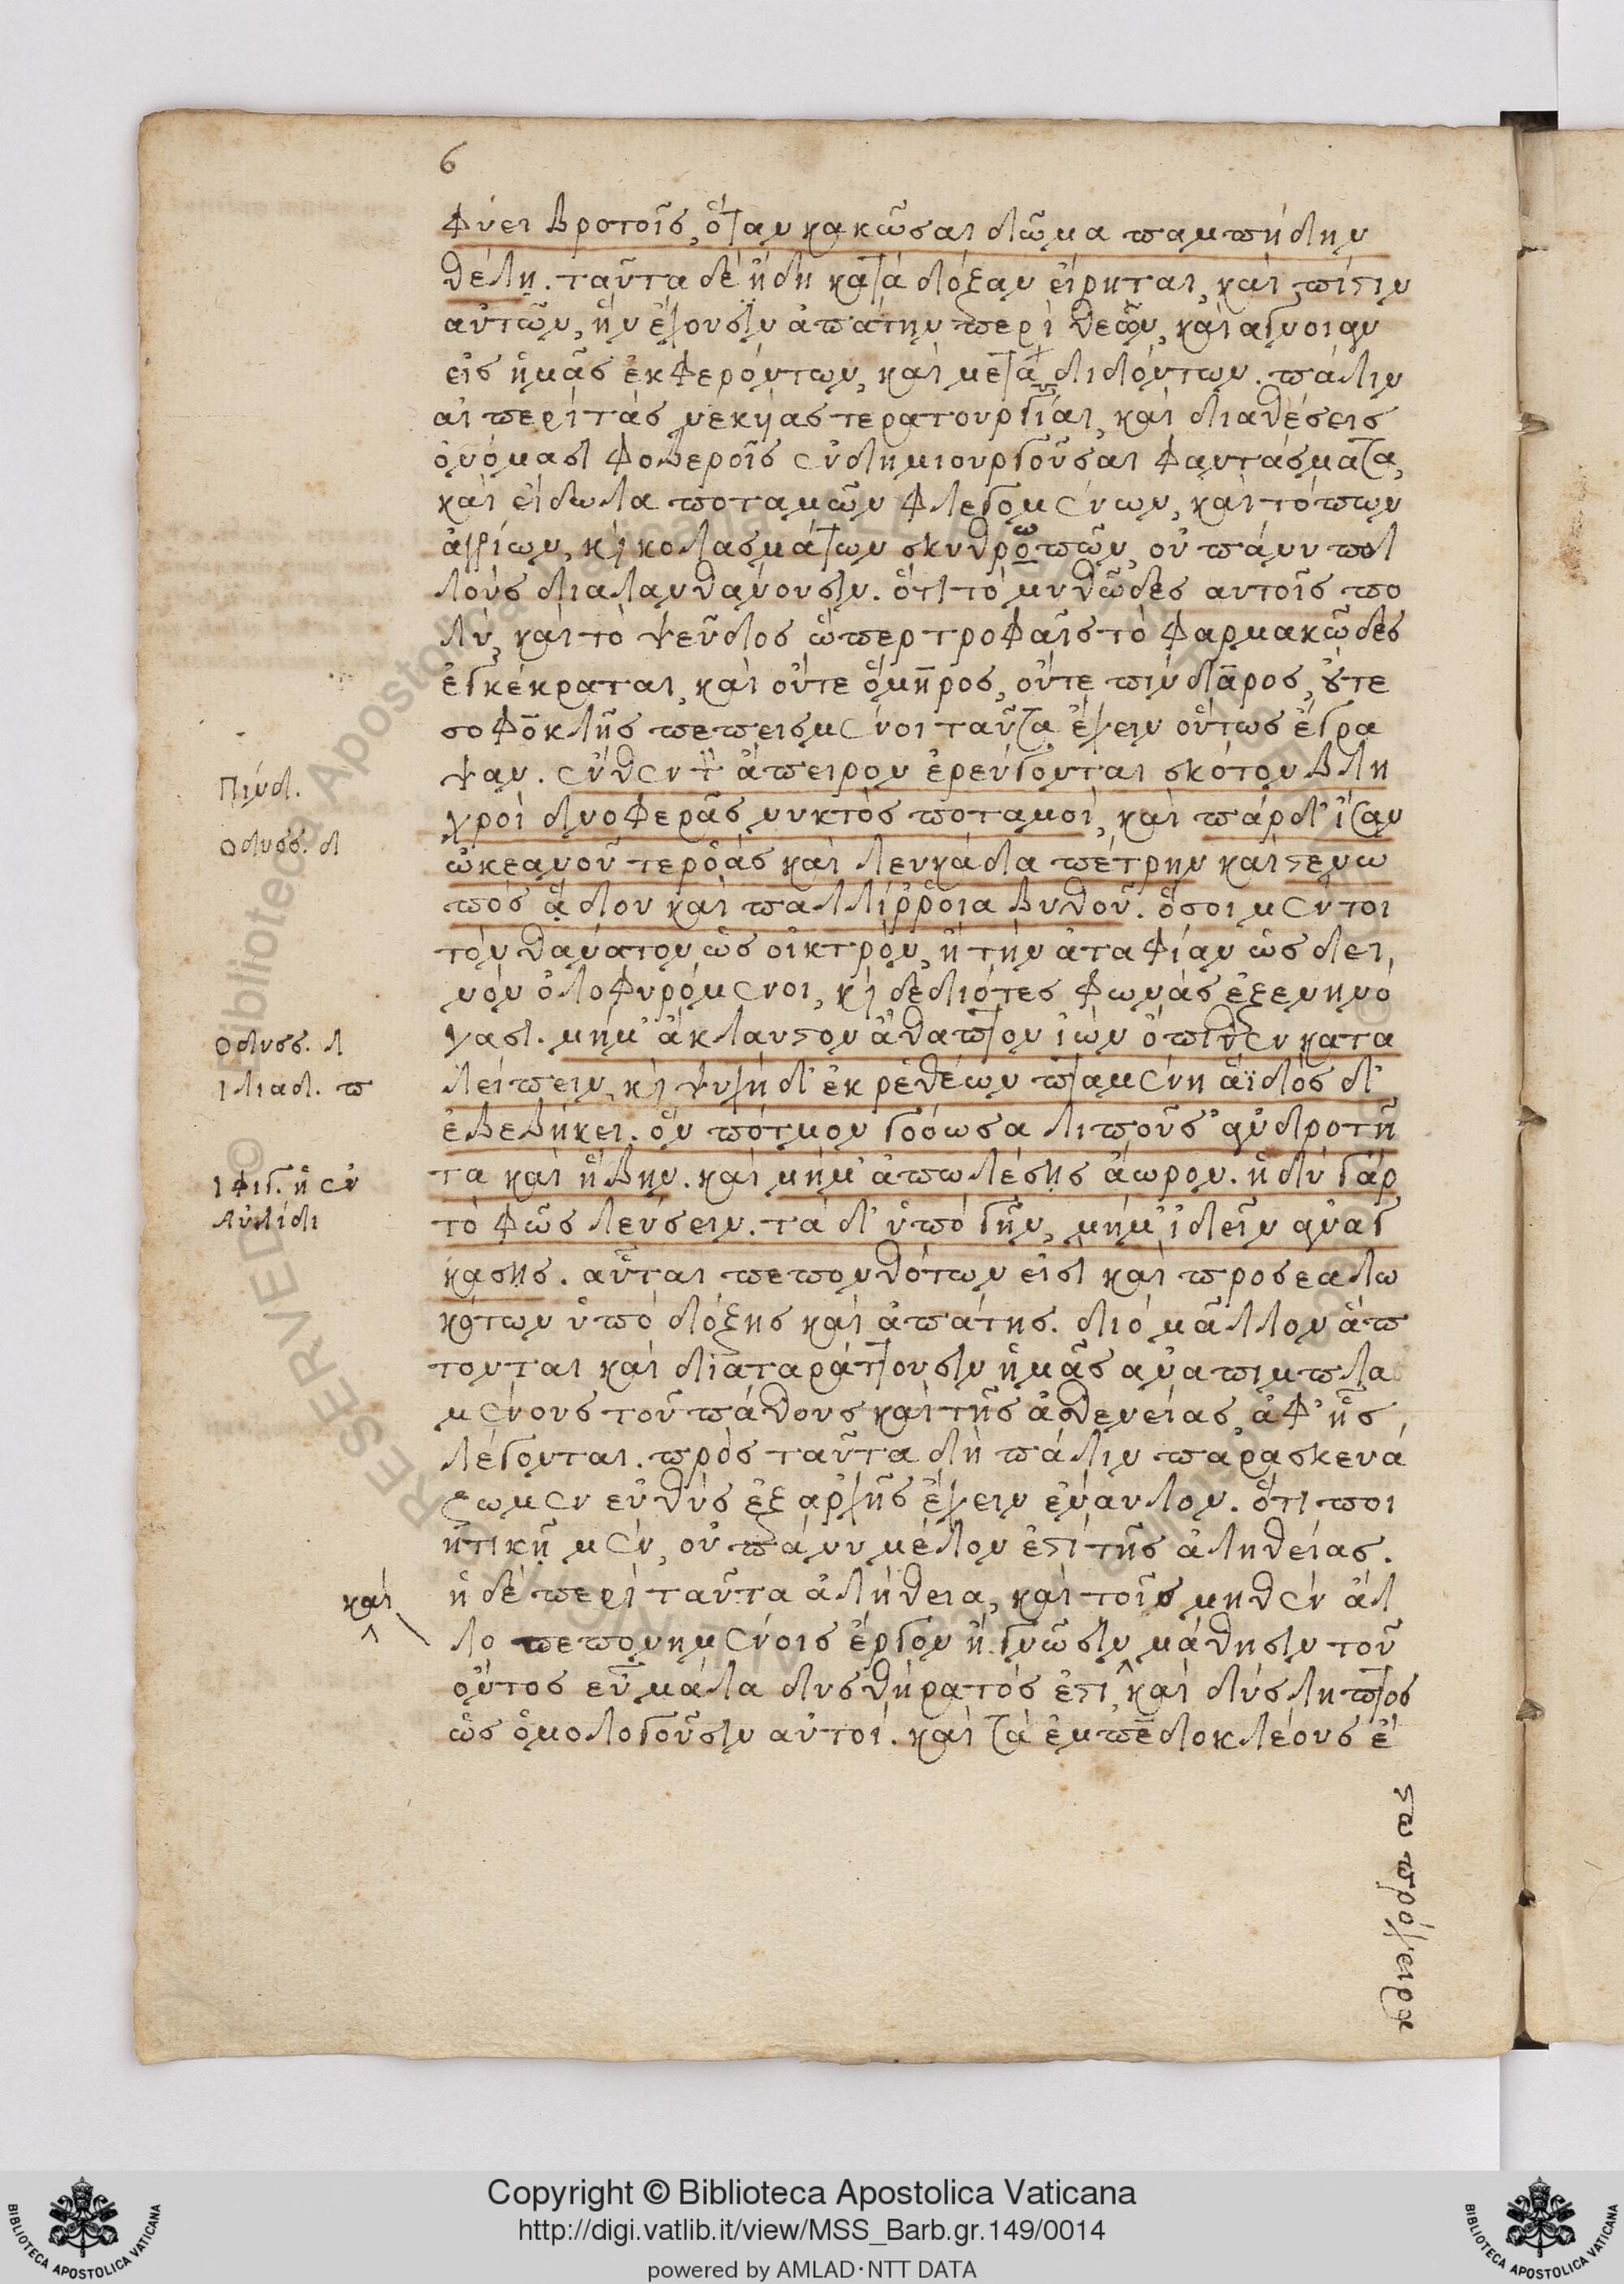 6
φύει βροτοῖς, ὅταν κακῶσαι δῶμα παμπήδην
θέλη. ταῦτα δὲ ἤδη κατὰ δόξαν εἴρηται, καὶ πίστιν
αὐτῶν, ἣν ἔχουσιν ἀπάτην περὶ θεῶν, καὶ αγνοιαν
εἰς ἡμᾶς ἐκφερόντων, καὶ μεταδιδόντων. πάλιν
αἱ περὶ τὰς νεκυίας τερατουργίαι, καὶ διαθέσεις
ὀνόμασι φοβεροῖς ἐνδημιουργοῦσαι φαντάσματα,
καὶ εἴδωλα ποταμῶν φλεγομένων, καὶ τόπων
ἀγρίων, κὶ κολασμάτων σκυθρωπῶν, οὐ πάνυ πολ
λοὺς διαλανθάνουσιν. ὅτι τὸ μυθῶδες αυτοῖς πο
λὺ, καὶ τὸ ψεῦδος ὥπερ τροφαῖς τὸ φαρμακῶδες
ἐγκέκραται, καὶ οὔτε ὅμηρος, οὔτε πίνδαρος, ȣ́τε
σοφοκλῆς πεπεισμένοι ταῦτα ἔχειν οὕτως ἔγρα
ψαν. ἔνθεν τὸ ἄπειρον ἐρεύγονται σκότον βλη
Πίνδ.
χροὶ δνοφερᾶς νυκτὸς ποταμοὶ, καὶ πὰρδ' ἴσαν
Οδυσσ. δ
ὠκεανοῦ τεροὰς καὶ λευκάδα πέτρην καὶ στενω
πὸς ᾅδου καὶ παλλίρροια βυθοῦ. ὅσοι μέντοι
τὸν θανατον ὡς οἰκτρὸν, ἢ τὴν ἀταφίαν ὡς δει,
νὸν ὀλοφυρόμενοι, κὶ δεδιότες φωνὰς ἐξενηνό
χασι. μήμ' ἄκλαυστον ἄθαπτον ἰὼν ὄπιθεν κατα
Οδυσσ. λ
λείπειν, κὶ ψυχὴ δ' ἐκ ρεθέων πταμένη ἄϊδὸς δ'
Ιλιαδ. π
ἐβεβήκει. ὃν πότμον γοόωσα λιποῦσ' ἀνδροτῆ
τα καὶ ἥβην. καὶ μήμ' ἀπωλέσης ἄωρον. ἡδὺ γὰρ
Ιφιγ. ἡ ἐν
τὸ φῶς λεύσειν. τὰ δ' ὑπὸ γῆν, μήμ' ἰδεῖν αναγ
Αὐλίδι
κασης. αὗται πεπονθότων εἰσὶ καὶ προσεαλω
κότων ὑπὸ δόξης καὶ ἀπάτης. διὸ μᾶλλον ἅπ
τονται καὶ διαταράττουσιν ἡμᾶς αναπιμπλα
μένους τοῦ πάθους καὶ τῆς ἀσθενείας, ἀφ' ἧς
λέγονται. πρὸς ταῦτα δὴ πάλιν παρασκευά
ζωμεν εὐθὺς ἐξ αρχῆς ἔχειν ἔναυλον. ὅτι ποι
ητικῆ μὲν, οὐ πάνυ μέλον ἐστὶ τῆς ἀληθείας.
ἡ δὲ περὶ ταῦτα ἀλήθεια, καὶ τοῖς μηθὲν ἄλ
καὶ
λο πεπονημένοις ἔργον ἢ γνῶσιν μάθησιν τοῦ
ὄντος εὖ μάλα δυσθήρατός ἐστι καὶ δύσληπτος
ὡς ὁμολογοῦσιν αὐτοί. καὶ τὰ ἐμπεδοκλέους ἔ
στω πρόχειρα